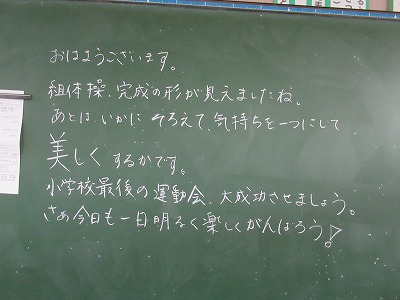 おはようございます。
組体操、完成の形が見えましたね。
あとは、いかに そろえて、気持ちを一つにして
美しく するかです。
小学校最後の運動会、大成功させましょう。
さぁ今日も一日明るく楽しくがんばろう!